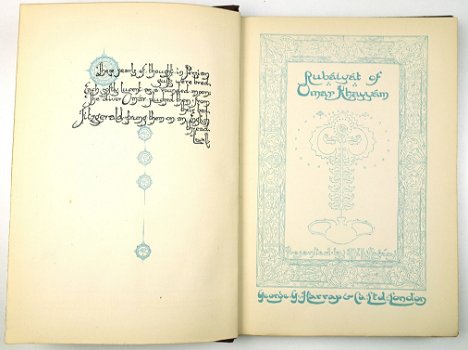 These pearls of thought in Persian
gulfs were bred
Each softly lucent as a rounded moon
The diver Omar plucked them from
their bed
Fitzgerald strung them on an English
thread.
Rubáiyát of
Omar Khayyám
Presented by
George G. Harrap & Co. Ltd. London